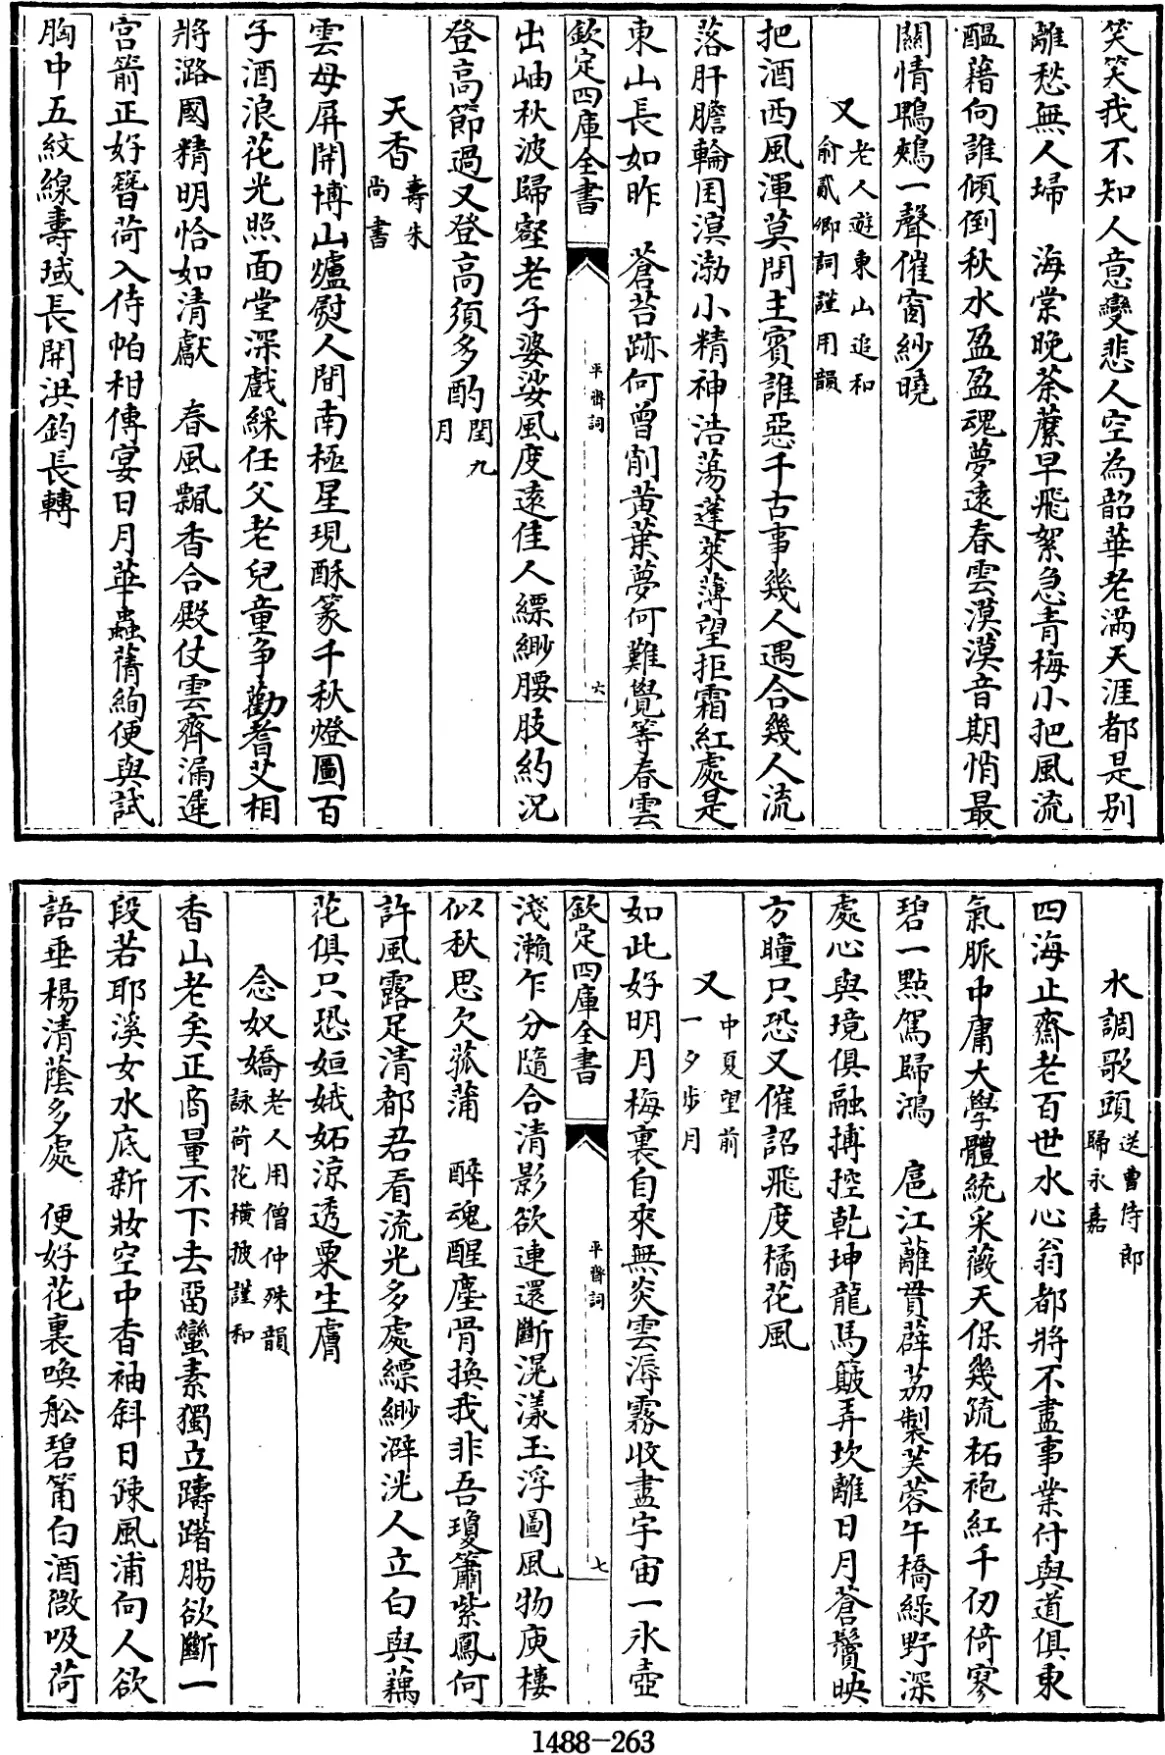 笑笑我不知人意變悲人空為韶華老滿天涯都是別
離愁無人埽　海棠晚荼蘼早飛絮急青梅小把風流
醖藉向誰傾倒秋水盈盈魂夢遠春雲漠漠音期悄最
關情鵯鵊一聲催窗紗曉
又老人遊東山追和
俞貳卿詞謹用韻
把酒西風渾莫問主賓誰惡千古事幾人遇合幾人流
落肝膽輪囷溟渤小精神浩蕩蓬萊薄望拒霜紅處是
東山長如昨　蒼苔跡何曾削黃葉夢何難覺等春雲
欽定四庫全書
平齋詞
六
出岫秋波歸壑老子婆娑風度遠佳人縹緲腰肢約況
登高節過又登高須多酌閏九
月
天香壽朱
尚書
雲母屏開博山爐熨人間南極星現酥篆千秋燈圖百
子酒浪花光照面堂深戲綵任父老兒童爭勸耆艾相
將潞國精明恰如清獻　春風飄香合殿仗雲齊漏遲
宮箭正好簪荷入侍帕柑傳宴日月華蟲蒨絢便與試
胸中五紋線壽域長開洪鈞長轉
水調歌頭送曹侍郎
歸永嘉
四海止齋老百世水心翁都將不盡事業付與道俱東
氣脈中庸大學體統采薇天保幾疏柘袍紅千仞倚寥
碧一點駕歸鴻　扈江蘺貫薜荔製芙蓉午橋綠野深
處心與境俱融搏控乾坤龍馬簸弄坎離日月蒼鬢映
方瞳只恐又催詔飛度橘花風
又中夏望前
一夕步月
如此好明月梅裏自來無炎雲溽霧收盡宇宙一氷壺
欽定四庫全書
平齋詞
七
淺瀨乍分隨合清影欲連還斷滉漾玉浮圖風物庾樓
似秋思欠菰蒲　醉魂醒塵骨換我非吾瓊簫紫鳳何
許風露足清都君看流光多處縹緲澼洸人立白與藕
花俱只恐姮娥妬涼透粟生膚
念奴嬌老人用僧仲殊韻
詠荷花橫披謹和
香山老矣正商量不下去留蠻素獨立躊躇腸欲斷一
段若耶溪女水底新妝空中香袖斜日疎風浦向人欲
語垂楊清蔭多處　便好花裏喚舩碧筩白酒微吸荷
1488-263